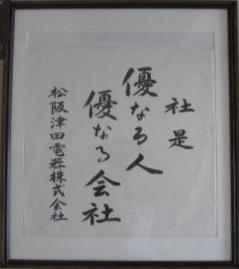 社是
優なる人
優なる会社
松阪津田電器株式会社